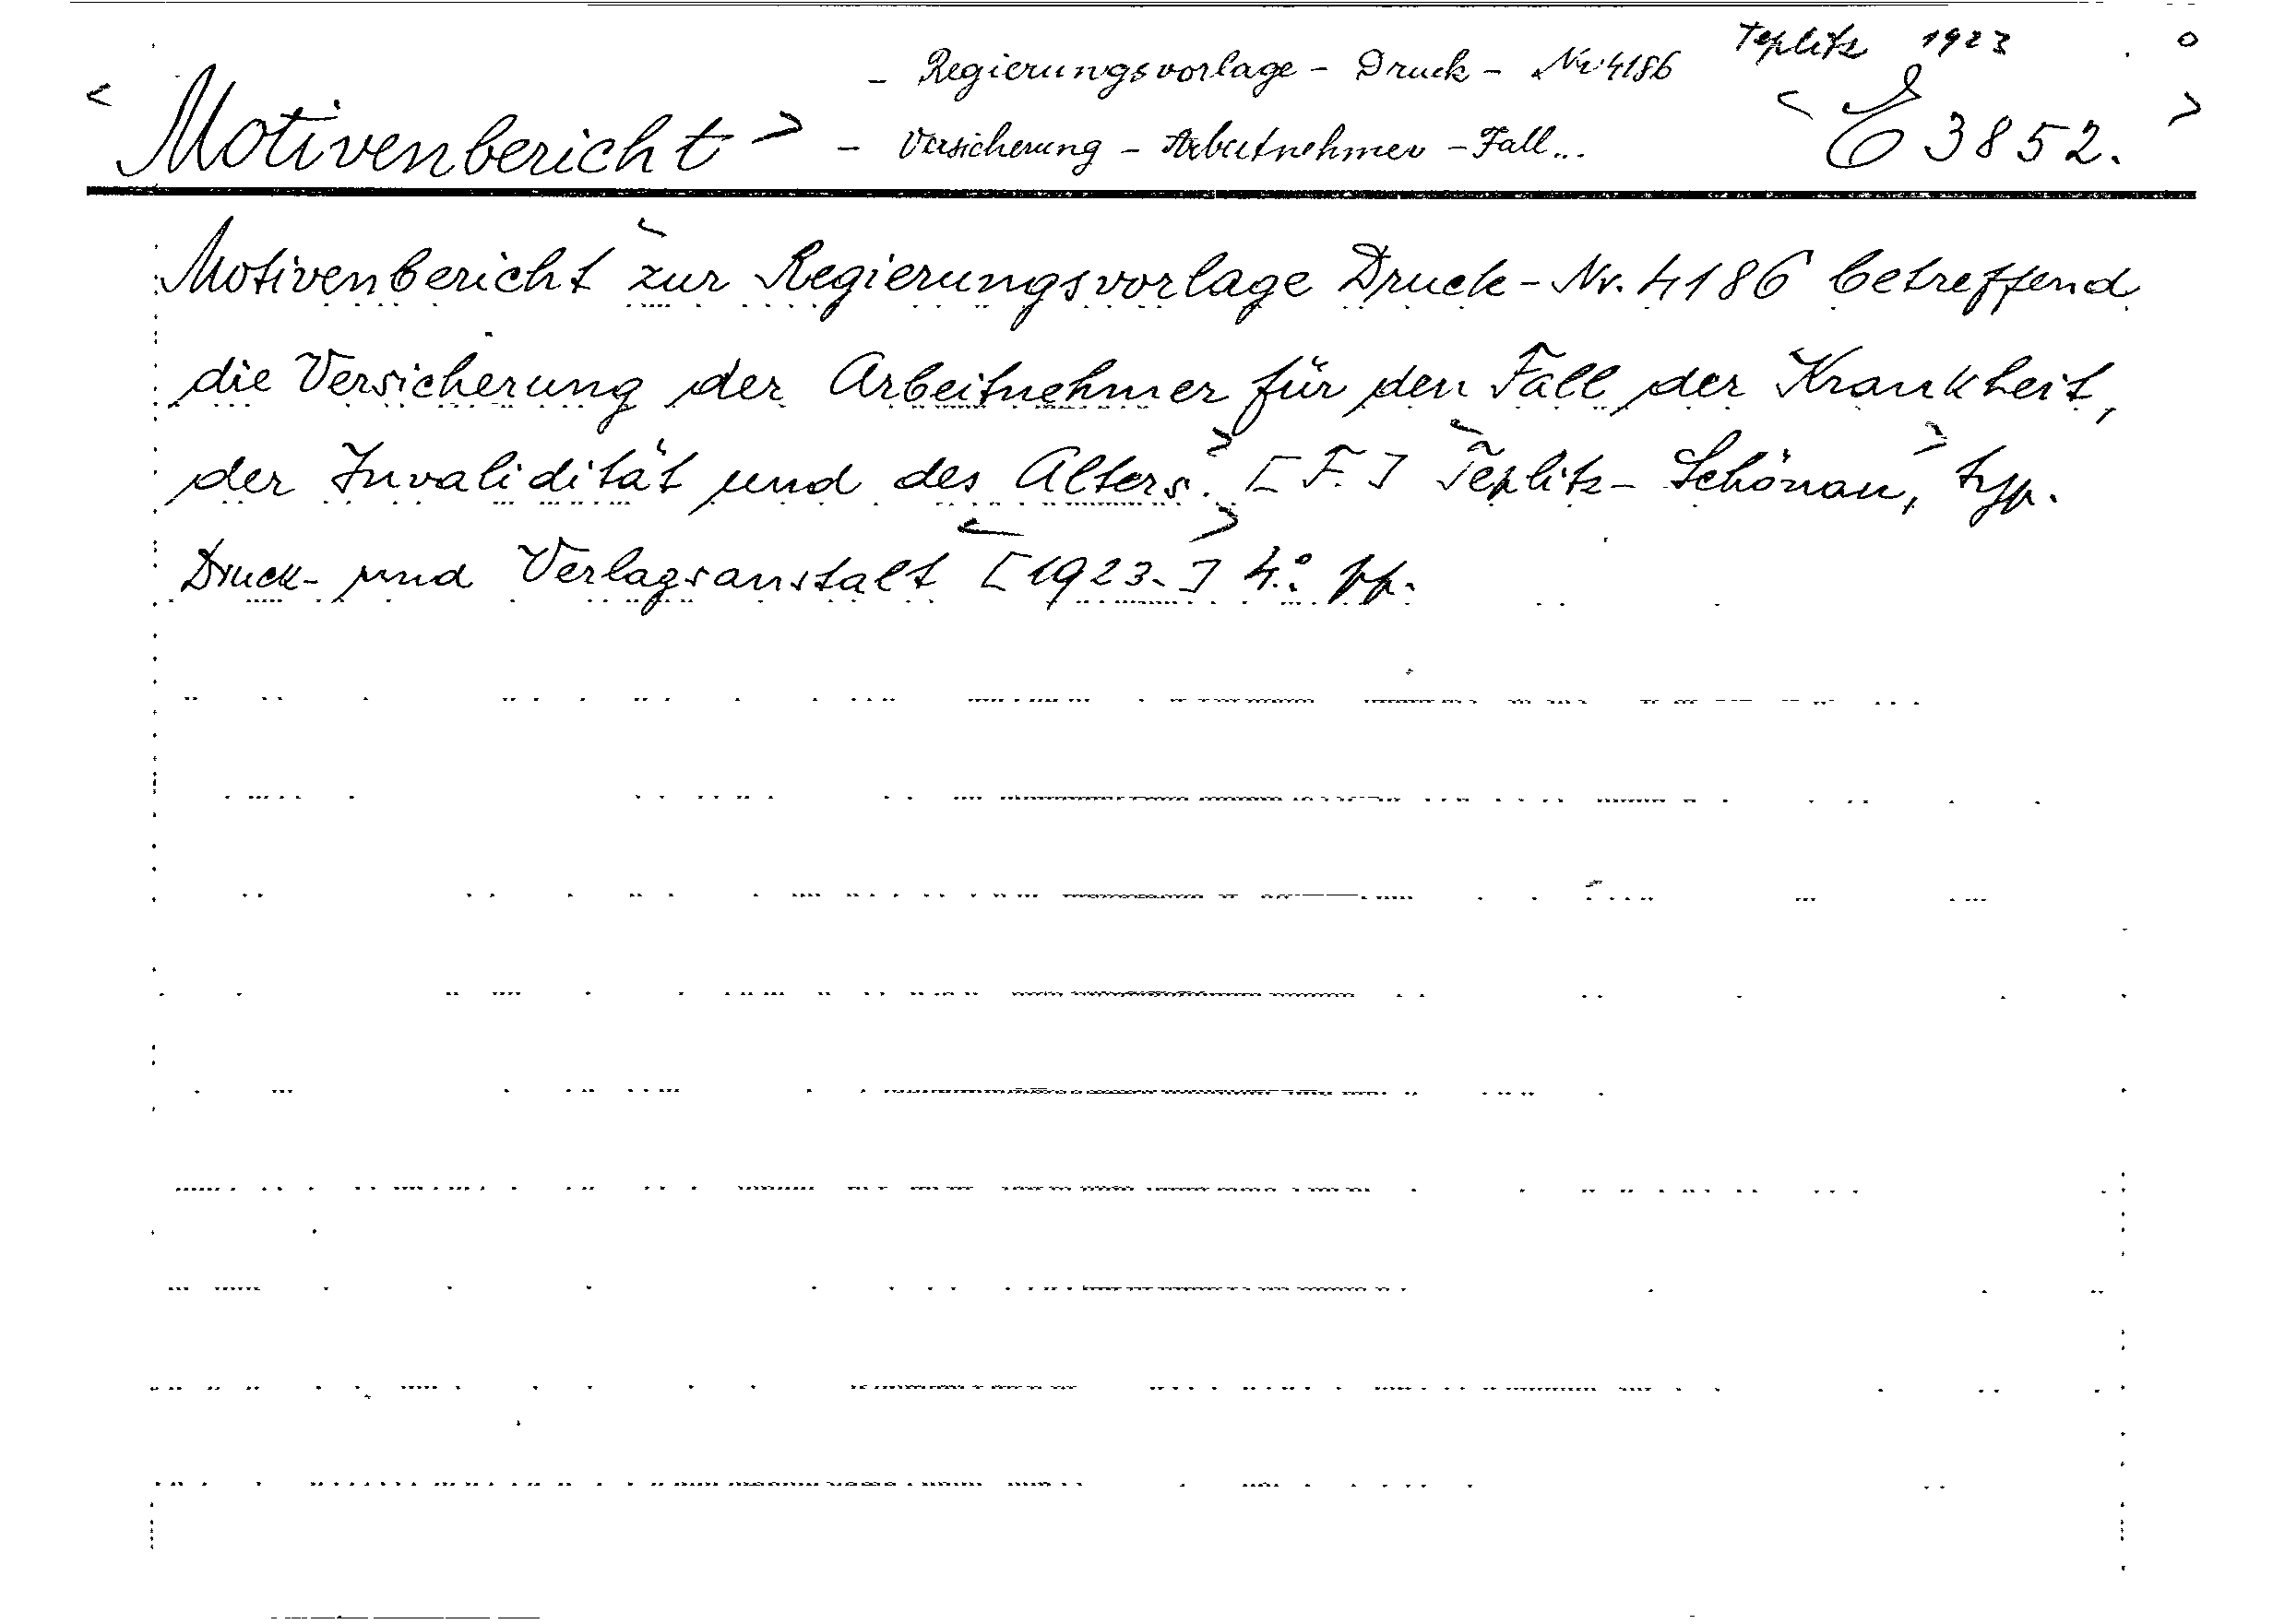 Teplitz 1923
- Regierungsvorlage - Druck - Nr 4186
< Motivenbericht > - Versicherung - Arbeitnehmer - Fall... < E 3852. >
Motivenbericht zur Regierungsvorlage Druck-Nr. 4186 betreffend
die Versicherung der Arbeitnehmer für den Fall der Krankheit,
der Invalidität und des Alters. > [F.] < Teplitz-Schönau, > typ.
Druck- und Verlagsanstalt < [1923.] > 4.° pp.